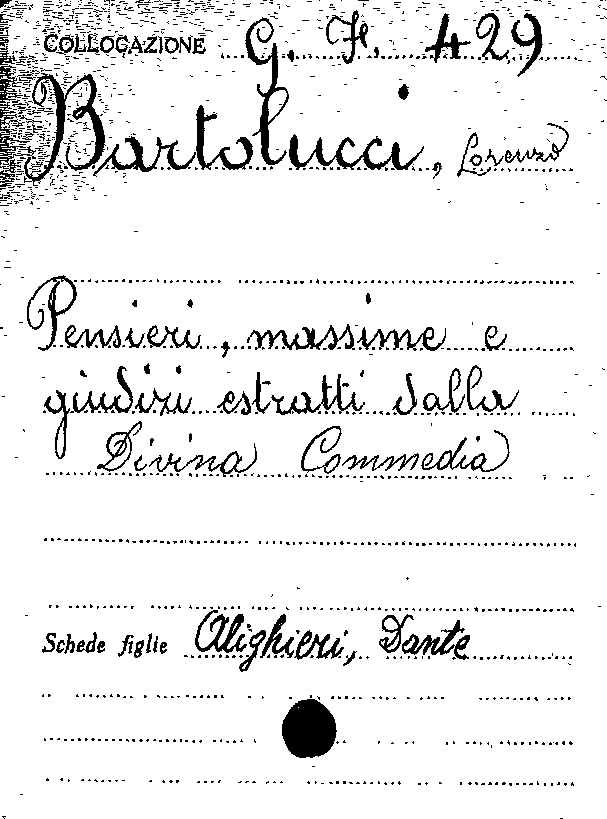 COLLOCAZIONE G. F. 429
Bartolucci, Lorenzo
Pensieri, massime e
giudizi estratti dalla
Divina Commedia
Schede figlie Alighieri, Dante